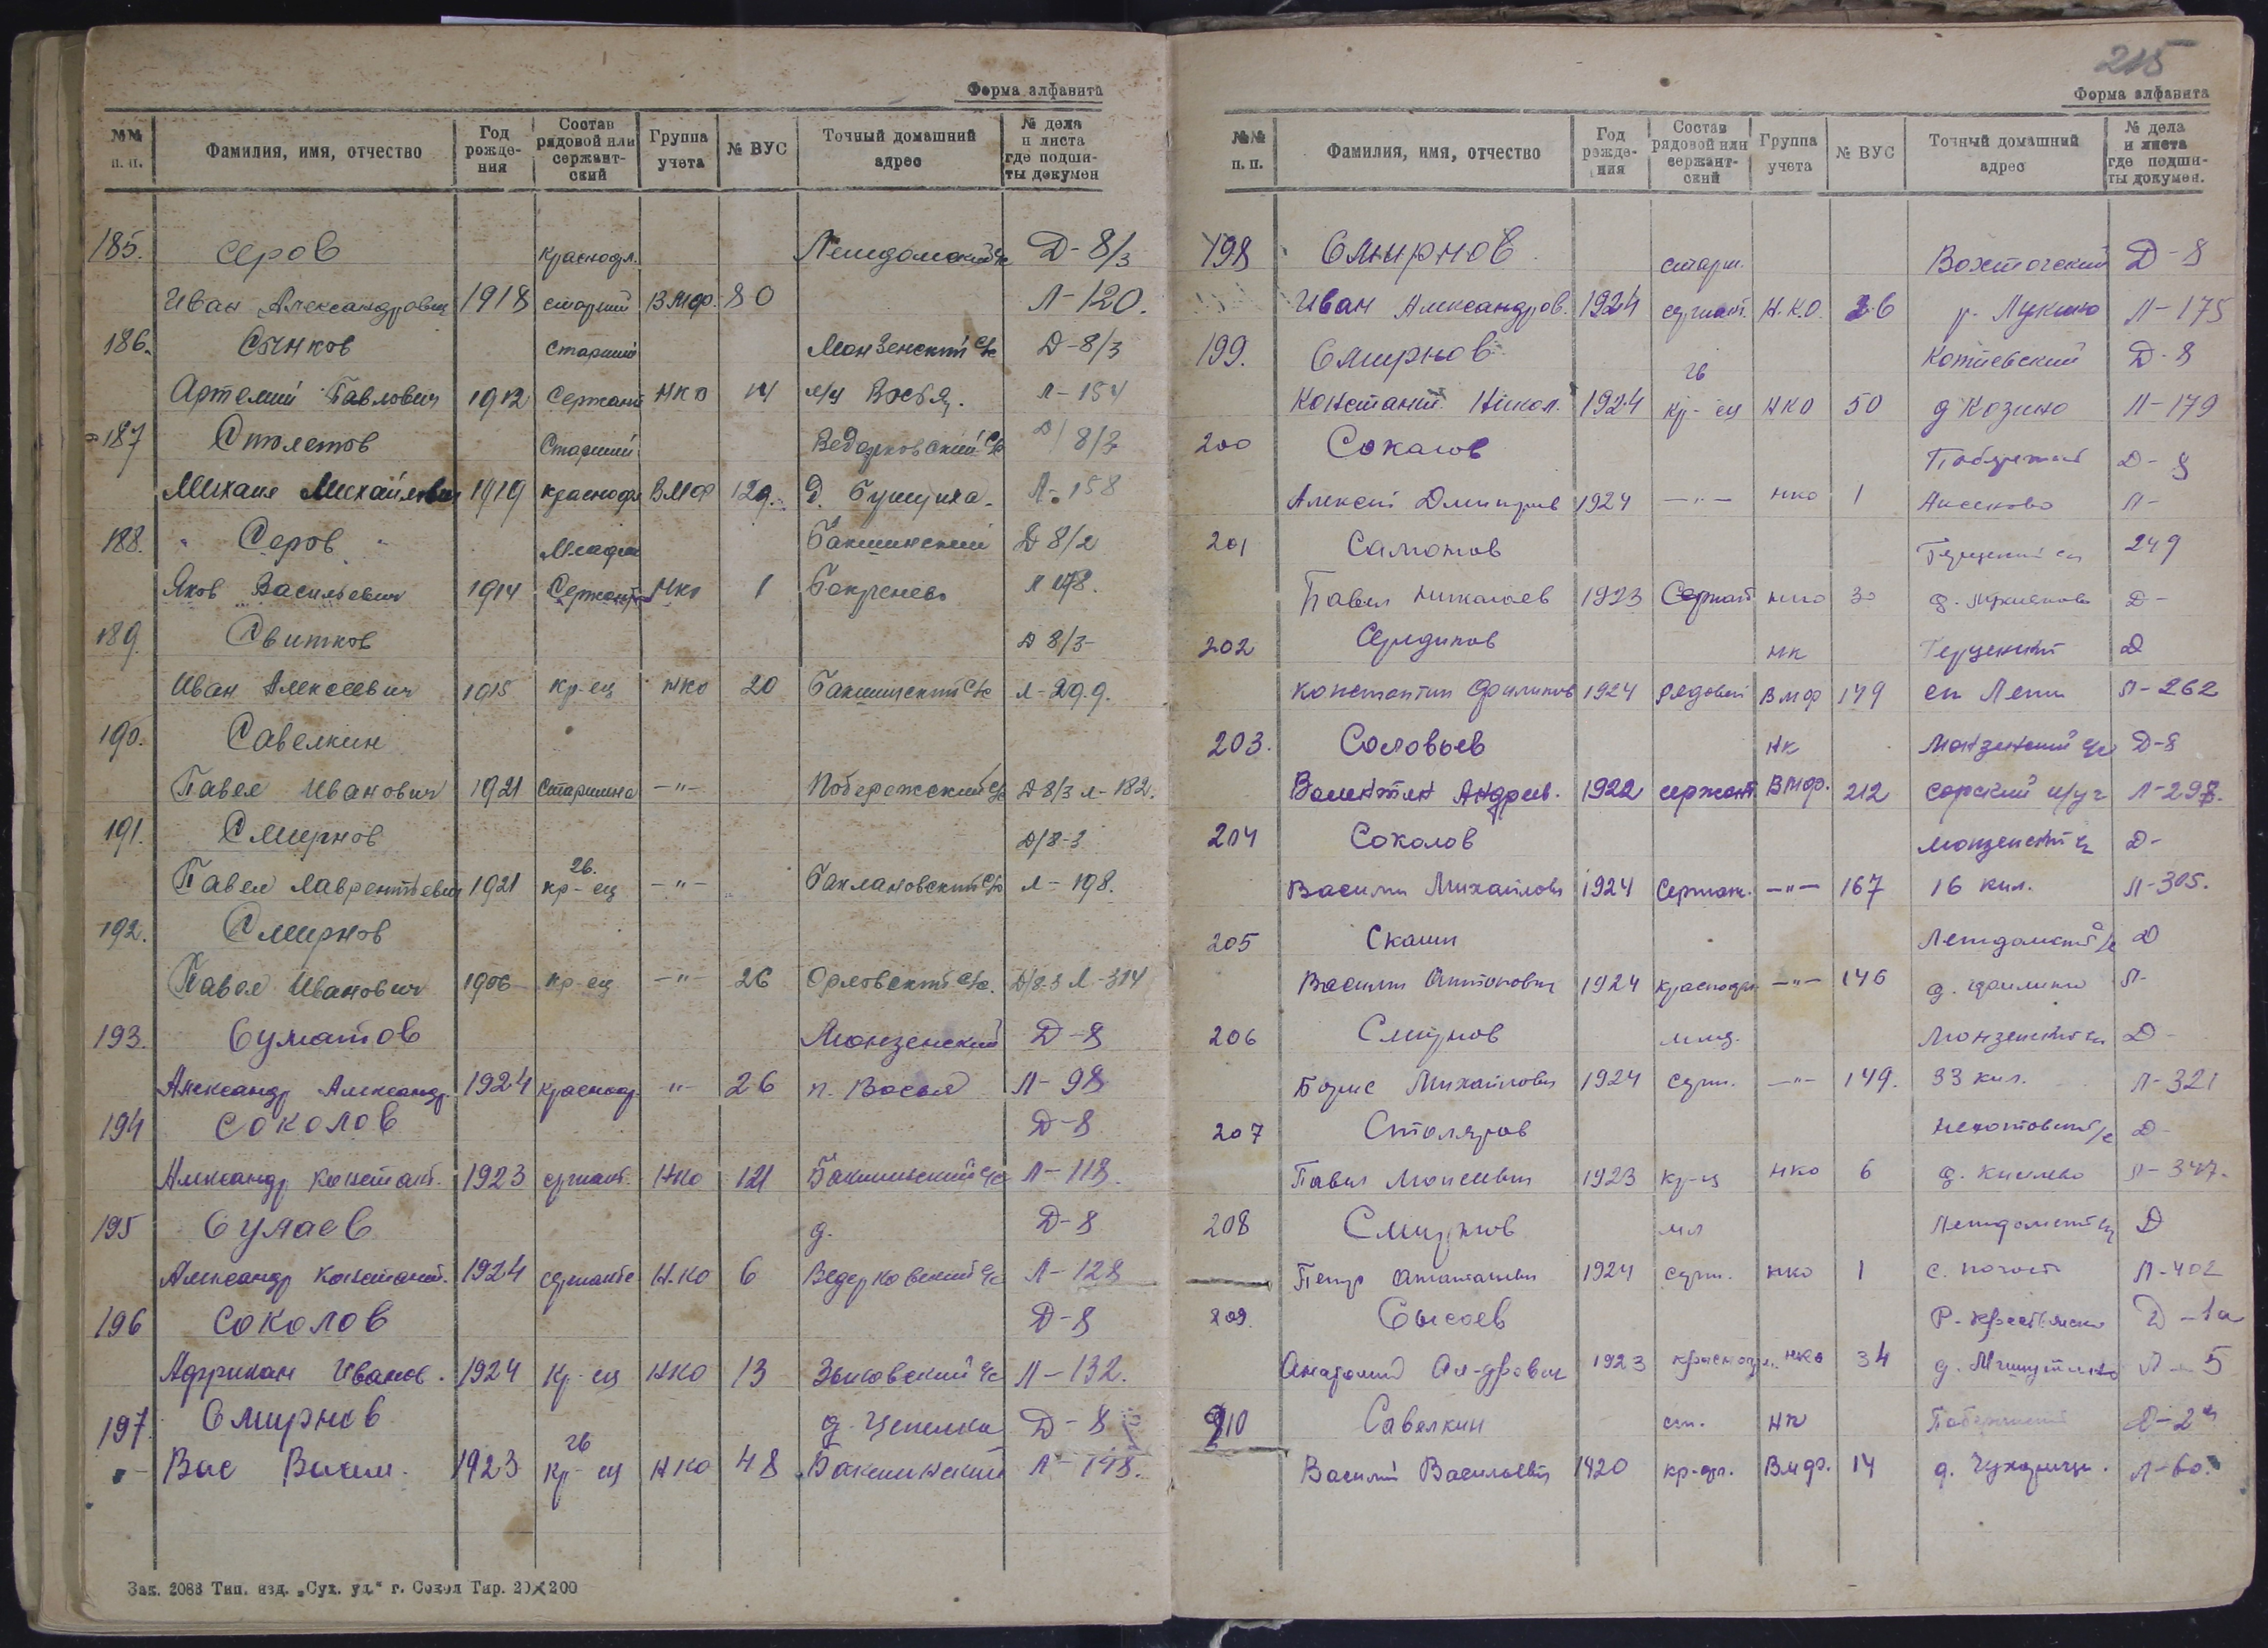 Форма алфавита
№№ п. п. Фамилия, имя, отчество Год рождения Состав рядовой или сержантский Группа учета № ВУС Точный домашний адрес № дела и листа где подшиты докумен
185. Серов краснофл. Д-8/3
Иван Александрович 1918 старший ВМФ. 80 Л-120.
186. Сынков старший Монзенский с/с Д-8/3
Артемий Павлович 1912 Сержант НКО 14 Л-154
187 Столетов Старший Ведерковский с/с Д/8/3
Михаил Михайлович 1919 краснофл ВМФ 129. д. Л-158
188. " Серов " Младш Бакшинский Д 8/2
Яков Васильевич 1914 Сержант НКО 1 Л 178.
189. Свитков Д 8/3-
Иван Алексеевич 1915 кр-ец НКО 20 Бакшинский с/с Л-29.9.
190. Савелкин
Павел Иванович 1921 Старшина -"- Побережский с/с Д 8/3 Л-182.
191. Смирнов Д/8-3
гв.
Павел Лаврентьевич 1921 кр-ец -"- Баклановский с/с Л-198.
192. Смирнов
Павел Иванович 1906 кр-ец -"- 26 Орловский с/с. Д/8-3 Л-314
193. Суматов Монзенский Д-8
Александр Александр. 1924 краснофл. -"- 26 п. Восья Л-98
194 Соколов Д-8
Александр Констант. 1923 сержант. НКО 121 Бакшинский с/с Л-118.
195 Сулаев д. Д-8
Александр Констант. 1924 сержант НКО 6 Ведерковский с/с Л-128
196 Соколов Д-8
Африкан Иванов. 1924 Кр-ец НКО 13 с/с Л-132.
197. Смирнов д. Цепелка Д-8
гв
Вас Васил. 1923 Кр-ец НКО 48 Бакшинский Л-148.
Зак. 2083 Тип. изд. „Сух. уд." г. Сокол Тир. 20×200
215
Форма алфавита
№№ п. п. Фамилия, имя, отчество Год рождения Состав рядовой или сержантский Группа учета № ВУС Точный домашний адрес № дела и листа где подшиты докумен.
198 Смирнов старш. Вохтогский Д-8
Иван Александров. 1924 сержант. Н.К.О. 26 Лукино Л-175
199. Смирнов Котиевский Д-8
гв
Констант. Никол. 1924 Кр-ец НКО 50 д Козино Л-179
200 Соколов Д-8
Алексей Дмитриев 1924 -"- НКО 1 Аксеново Л-
201 Самонов 249
Павел Николаев 1923 Сержант НКО 30 д. Д-
202 Середиков НК Герцений Д
Константин Филиппов 1924 Рядовой ВМФ 179 Л-262
203. Соловьев НК Монзенский с/с Д-8
Валентин Андреев. 1922 сержант. ВМФ. 212 Л-298.
204 Соколов Д-
Василий Михайлович 1924 Сержан. -"- 167 16 кил. Л-305.
205 Скамин Д
Василий Антонович 1924 краснофл -"- 146 д. Л-
206 Смирнов млад. Д-
Борис Михайлович 1924 серж. -"- 149. 33 кил. Л-321
207 Столяров Д-
Павел Моисеевич 1923 Кр-ец НКО 6 д. Киселево Л-347.
208 Смирнов мл Д
Петр 1924 серж. НКО 1 с. погост Л-402
209. Сысоев Р-Крестьянск Д-1а
Анатолий Ал-дрович 1923 краснофл. НКО 34 д. Л-5
210 Савелкин ст. НК Д-2
Василий Васильевич 1920 кр-фл. ВМФ. 14 д. Л-60.